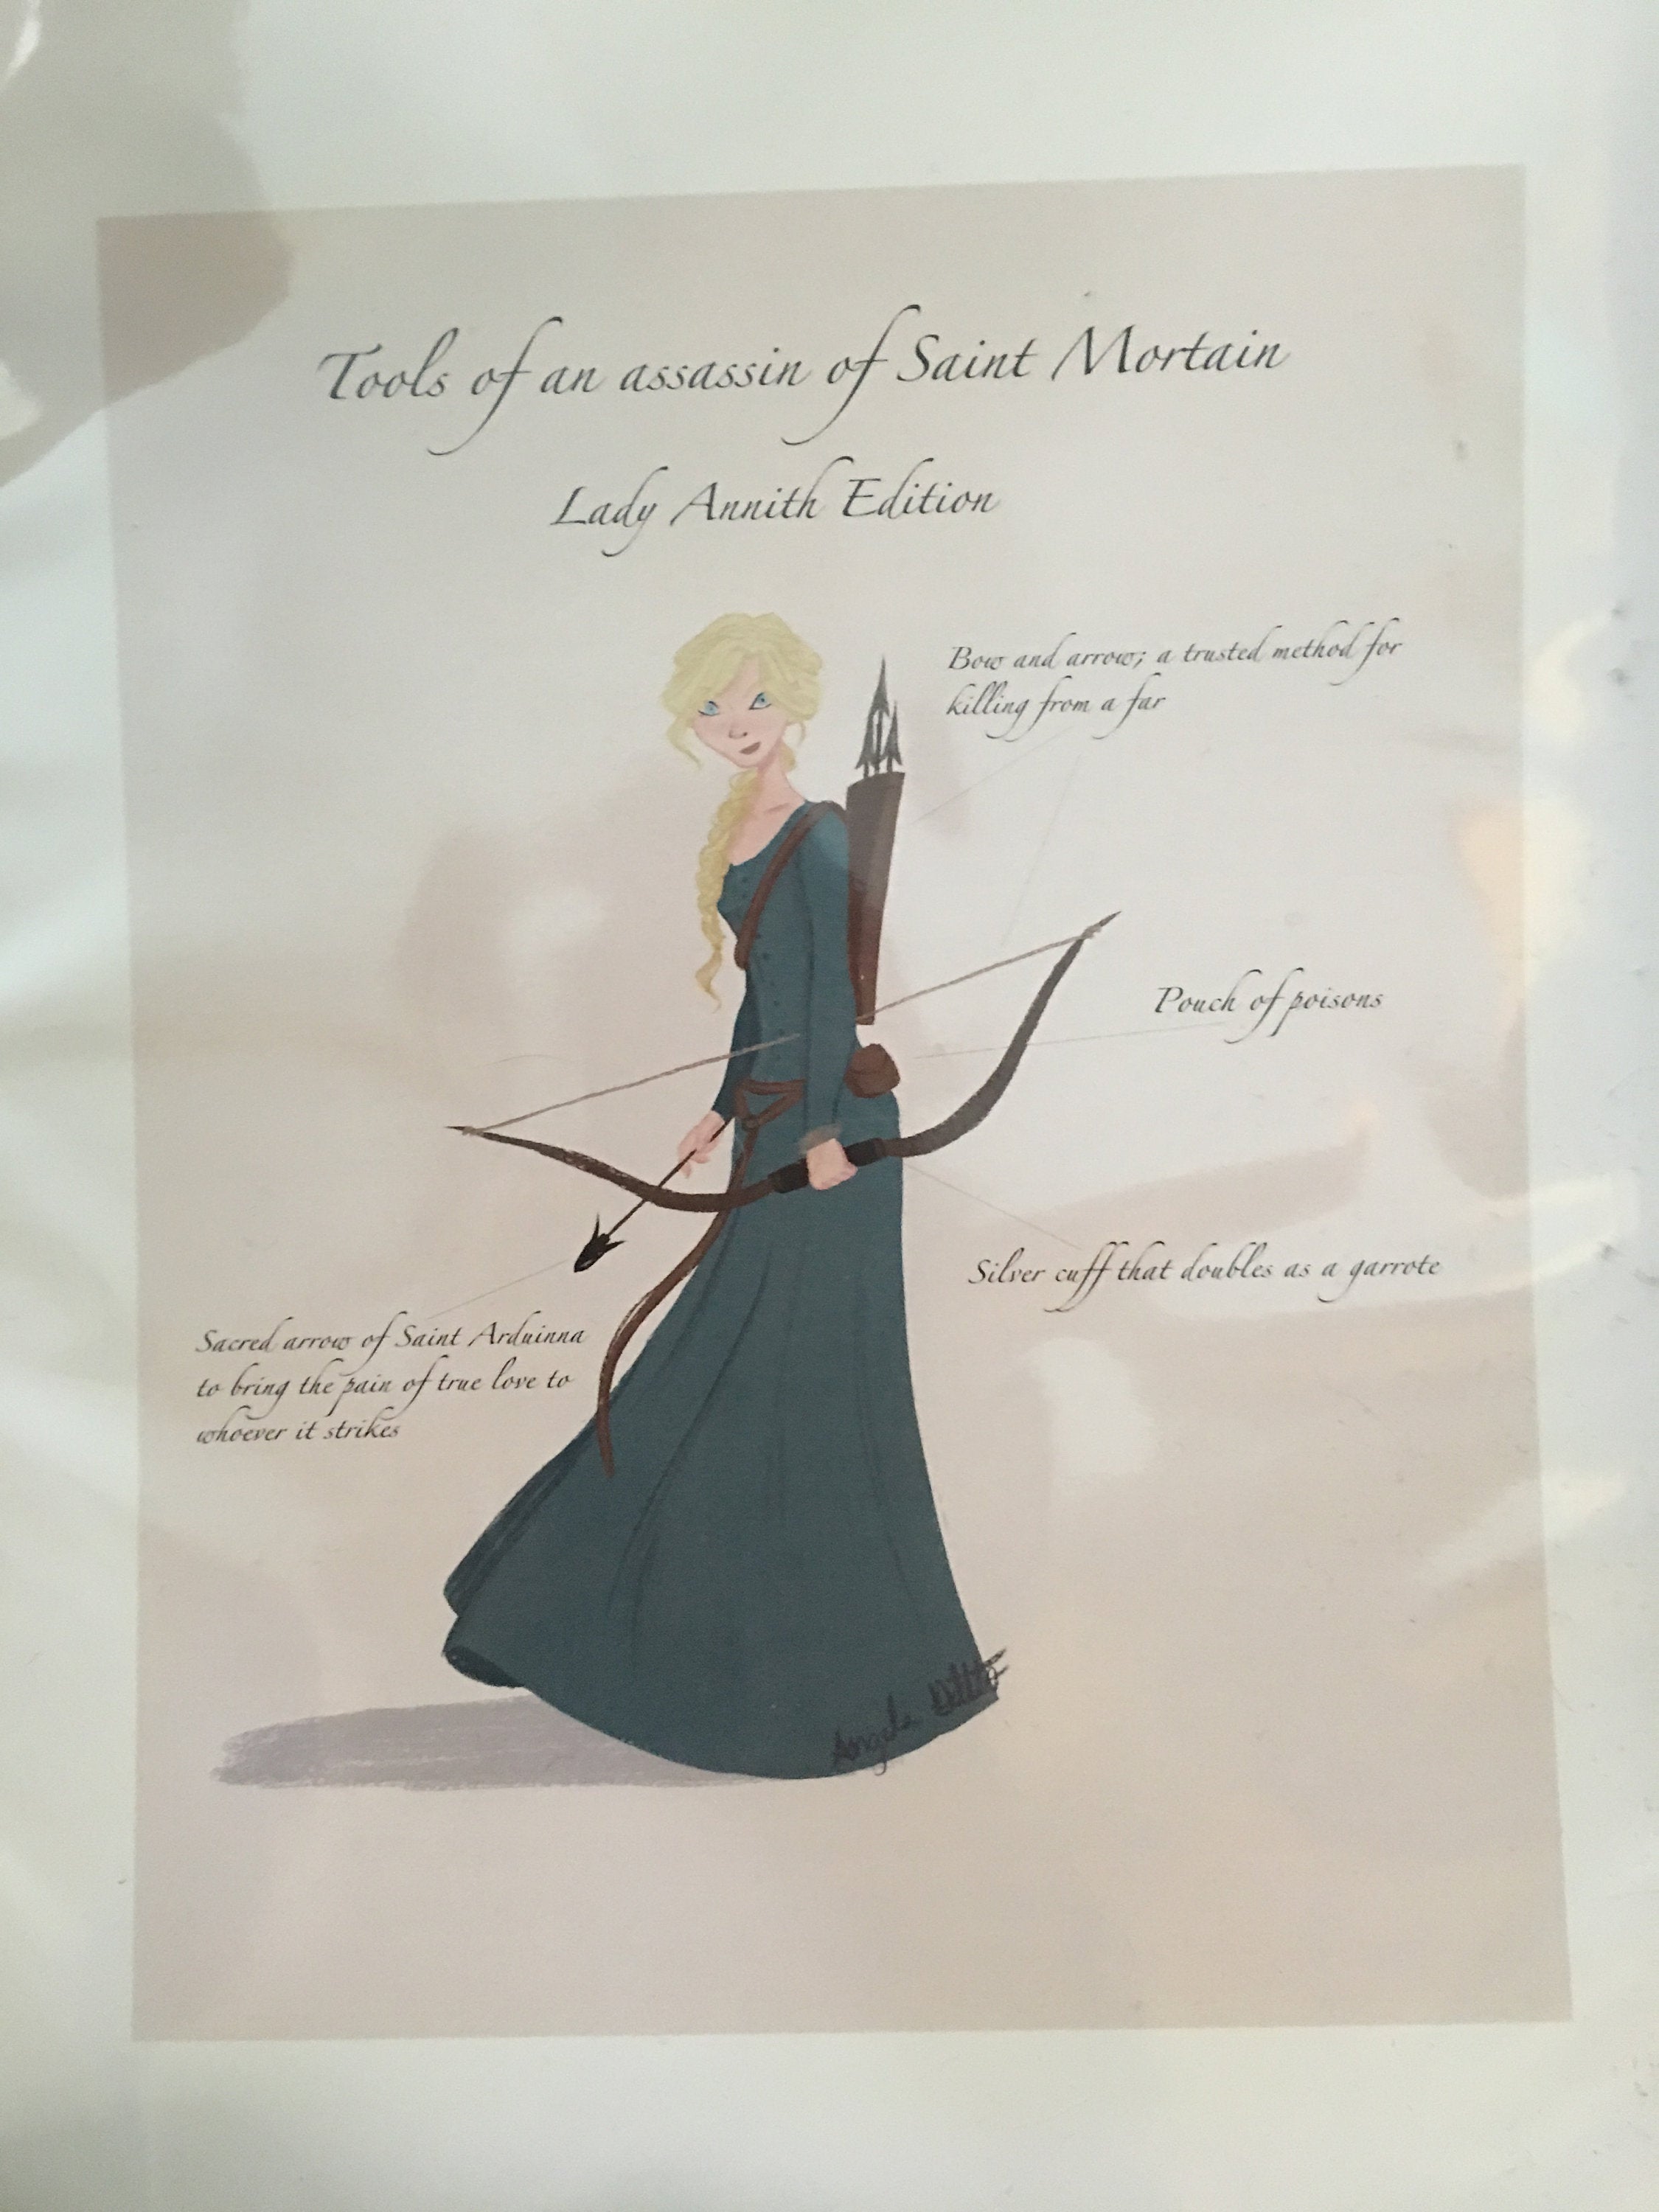 Tools of an assassin of Saint Mortain
Lady Annith Edition
Bow and arrow; a trusted method for
killing from a far
Pouch of poisons
Silver cuff that doubles as a garrote
Sacred arrow of Saint Arduinna
to bring the pain of true love to
whoever it strikes
Angela